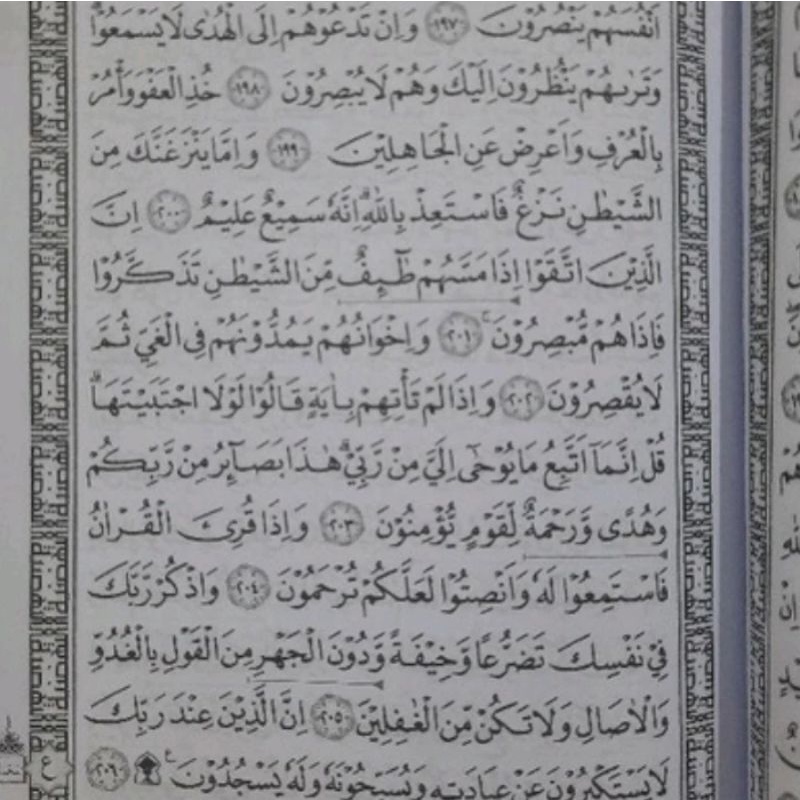 اَنْفُسَهُمْ يَنْصُرُوْنَ ﴿١٩٧﴾ وَاِنْ تَدْعُوْهُمْ اِلَى الْهُدٰى لَا يَسْمَعُوْاۗ
وَتَرٰىهُمْ يَنْظُرُوْنَ اِلَيْكَ وَهُمْ لَا يُبْصِرُوْنَ ﴿١٩٨﴾ خُذِ الْعَفْوَ وَأْمُرْ
بِالْعُرْفِ وَاَعْرِضْ عَنِ الْجَاهِلِيْنَ ﴿١٩٩﴾ وَاِمَّا يَنْزَغَنَّكَ مِنَ
الشَّيْطٰنِ نَزْغٌ فَاسْتَعِذْ بِاللّٰهِۗ اِنَّهٗ سَمِيْعٌ عَلِيْمٌ ﴿٢٠٠﴾ اِنَّ
الَّذِيْنَ اتَّقَوْا اِذَا مَسَّهُمْ طٰۤىِٕفٌ مِّنَ الشَّيْطٰنِ تَذَكَّرُوْا
فَاِذَا هُمْ مُّبْصِرُوْنَۚ ﴿٢٠١﴾ وَاِخْوَانُهُمْ يَمُدُّوْنَهُمْ فِى الْغَيِّ ثُمَّ
لَا يُقْصِرُوْنَ ﴿٢٠٢﴾ وَاِذَا لَمْ تَأْتِهِمْ بِاٰيَةٍ قَالُوْا لَوْلَا اجْتَبَيْتَهَاۗ
قُلْ اِنَّمَآ اَتَّبِعُ مَا يُوْحٰٓى اِلَيَّ مِنْ رَّبِّيْۗ هٰذَا بَصَاۤىِٕرُ مِنْ رَّبِّكُمْ
وَهُدًى وَّرَحْمَةٌ لِّقَوْمٍ يُّؤْمِنُوْنَ ﴿٢٠٣﴾ وَاِذَا قُرِئَ الْقُرْاٰنُ
فَاسْتَمِعُوْا لَهٗ وَاَنْصِتُوْا لَعَلَّكُمْ تُرْحَمُوْنَ ﴿٢٠٤﴾ وَاذْكُرْ رَّبَّكَ
فِيْ نَفْسِكَ تَضَرُّعًا وَّخِيْفَةً وَّدُوْنَ الْجَهْرِ مِنَ الْقَوْلِ بِالْغُدُوِّ
وَالْاٰصَالِ وَلَا تَكُنْ مِّنَ الْغٰفِلِيْنَ ﴿٢٠٥﴾ اِنَّ الَّذِيْنَ عِنْدَ رَبِّكَ
لَا يَسْتَكْبِرُوْنَ عَنْ عِبَادَتِهٖ وَيُسَبِّحُوْنَهٗ وَلَهٗ يَسْجُدُوْنَ ۩ ﴿٢٠٦﴾
ع